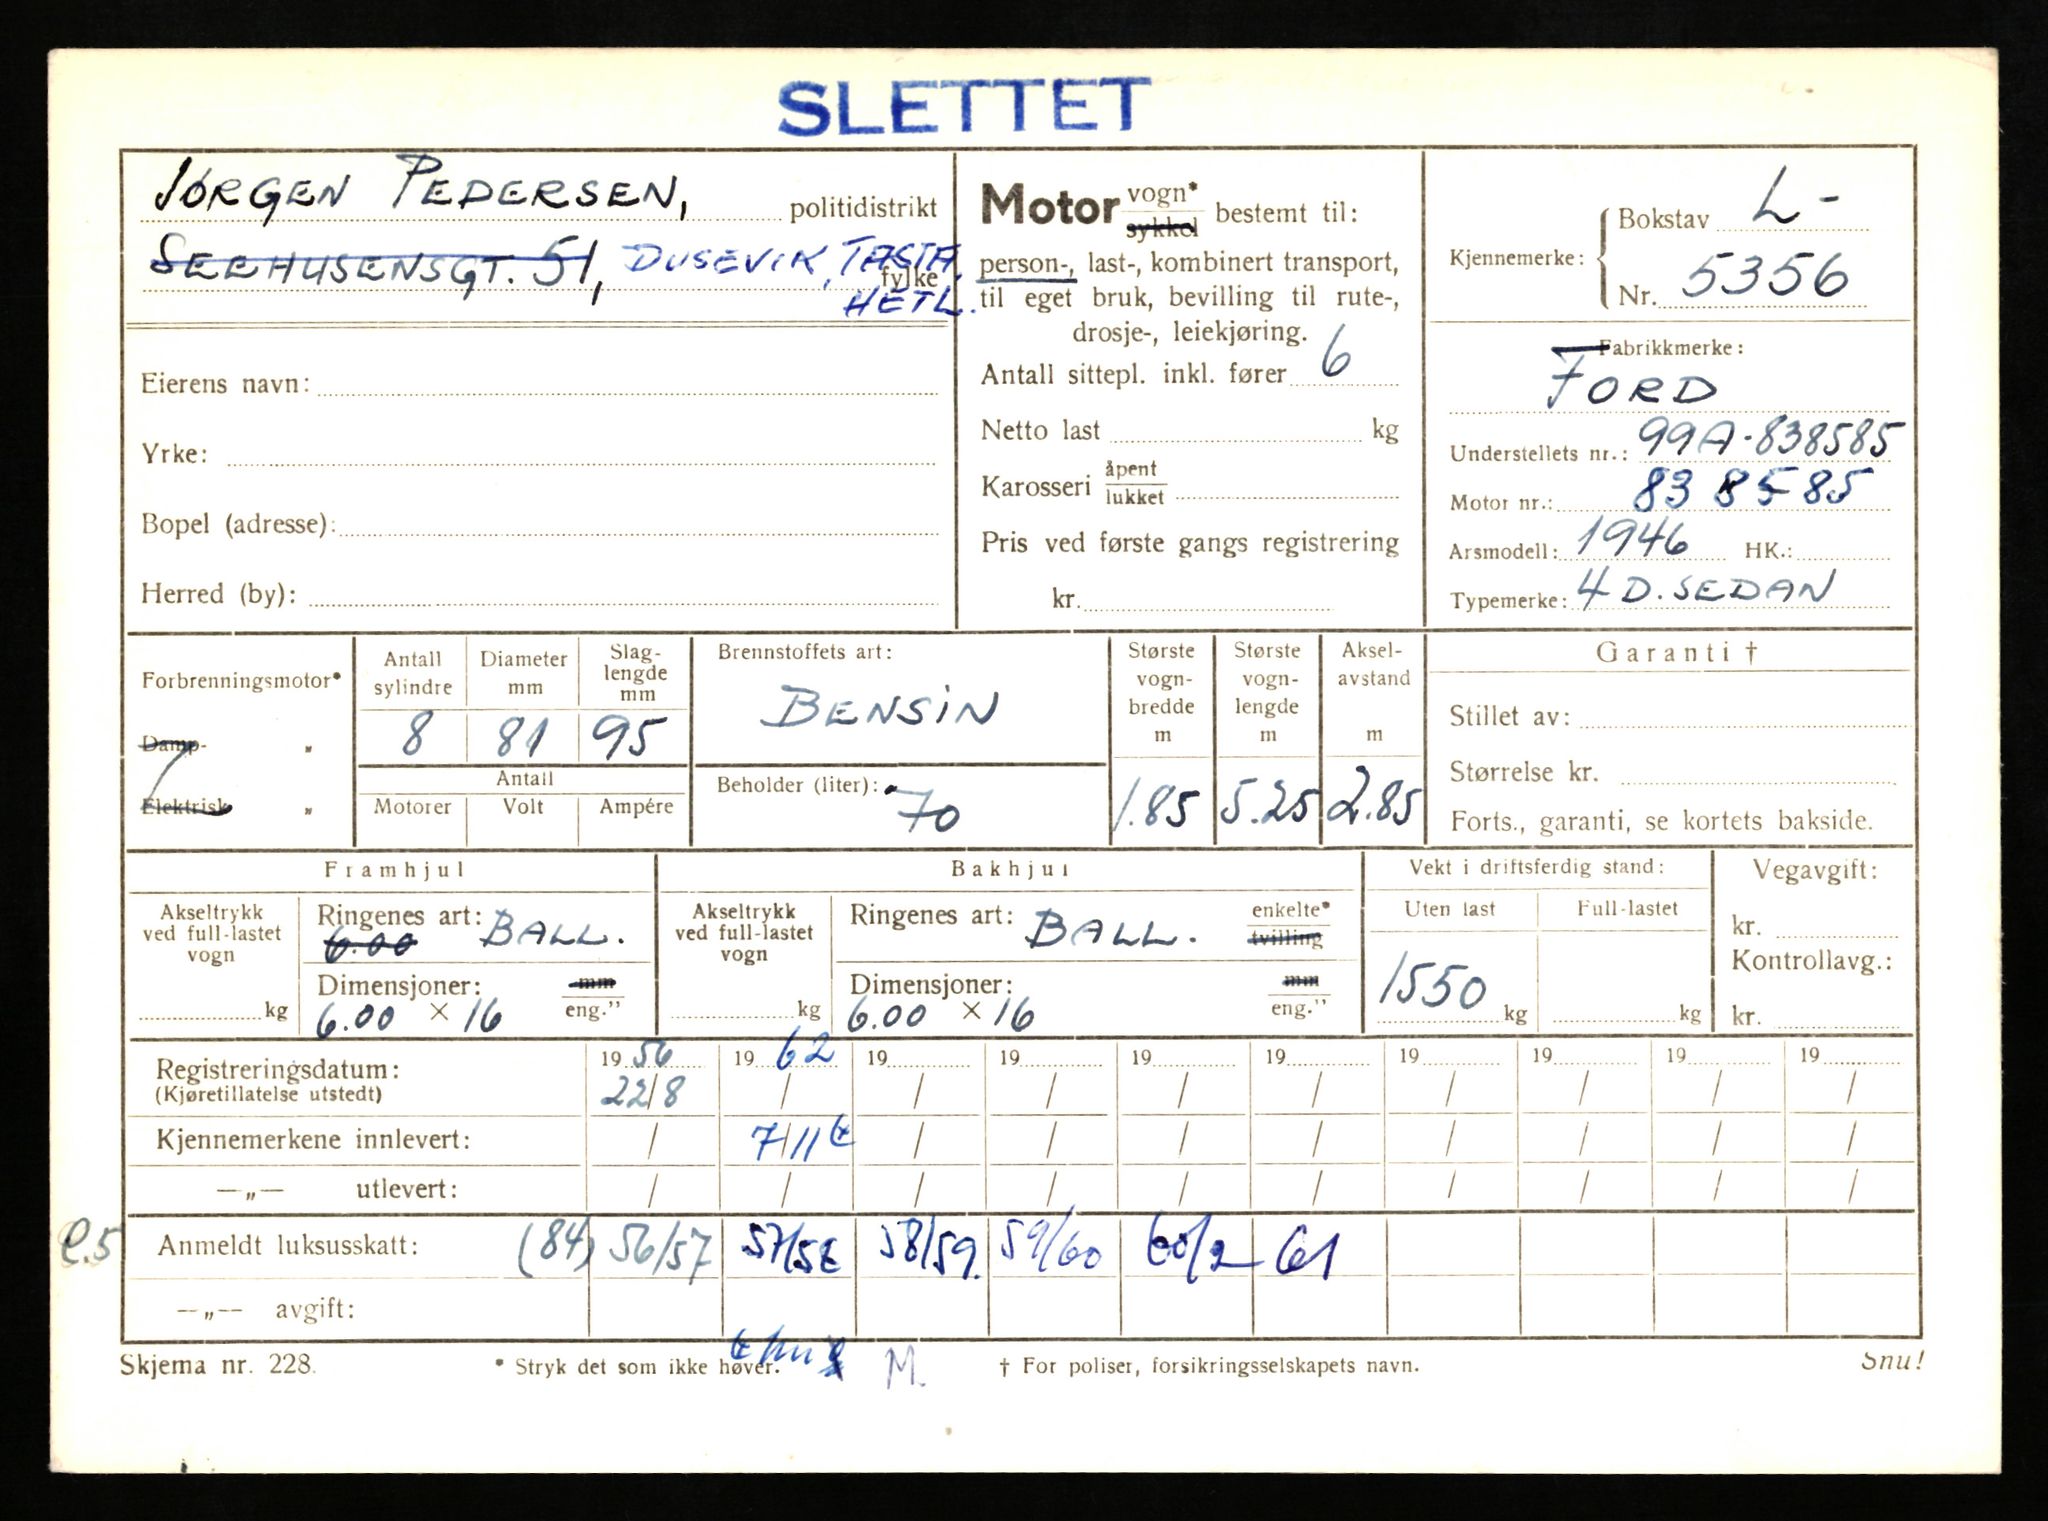 SLETTET
JØRGEN PEDERSEN, politidistrikt
SEEHUSENSGT. 51, DUSEVIK, TASTA, fylke
HETL.
Eierens navn:
Yrke:
Bopel (adresse):
Herred (by):
Motor vogn* sykkel bestemt til:
person-, last-, kombinert transport,
til eget bruk, bevilling til rute-,
drosje-, leiekjøring.
Antall sittepl. inkl. fører 6
Netto last kg
Karosseri åpent lukket
Pris ved første gangs registrering
kr.
Kjennemerke: Bokstav L-
Nr. 5356
Fabrikkmerke:
FORD
Understellets nr.: 99A-838585
Motor nr.: 838585
Arsmodell: 1946 HK.:
Typemerke: 4 D. SEDAN
Forbrenningsmotor*
Damp- "
Elektrisk "
Antall sylindre
8
Diameter mm
81
Slag-
lengde
mm
95
Antall
Motorer Volt Ampére
Brennstoffets art:
BENSIN
Beholder (liter):
70
Største
vogn-
bredde
m
1.85
Største
vogn-
lengde
m
5.25
Aksel-
avstand
m
2.85
Garanti †
Stillet av:
Størrelse kr.
Forts., garanti, se kortets bakside.
Framhjul
Akseltrykk
ved full-lastet
vogn
kg
Ringenes art: BALL.
6.00
Dimensjoner: mm
6.00 × 16 eng."
Bakhjul
Akseltrykk
ved full-lastet
vogn
kg
Ringenes art: BALL. enkelte*
tvilling
Dimensjoner: mm
6.00 × 16 eng."
Vekt i driftsferdig stand:
Uten last Full-lastet
1550 kg kg
Vegavgift:
kr.
Kontrollavg.:
kr.
Registreringsdatum: 19 56 19 62 19 19 19 19 19 19 19 19
(Kjøretillatelse utstedt) 22/8 / / / / / / / / /
Kjennemerkene innlevert: / 7/11 / / / / / / / /
—„— utlevert: / / / / / / / / / /
e.5 Anmeldt luksusskatt: (84) 56/57 57/58 58/59. 59/60 60/2 61
—„— avgift:
Skjema nr. 228. * Stryk det som ikke høver. M. † For poliser, forsikringsselskapets navn. Snu!